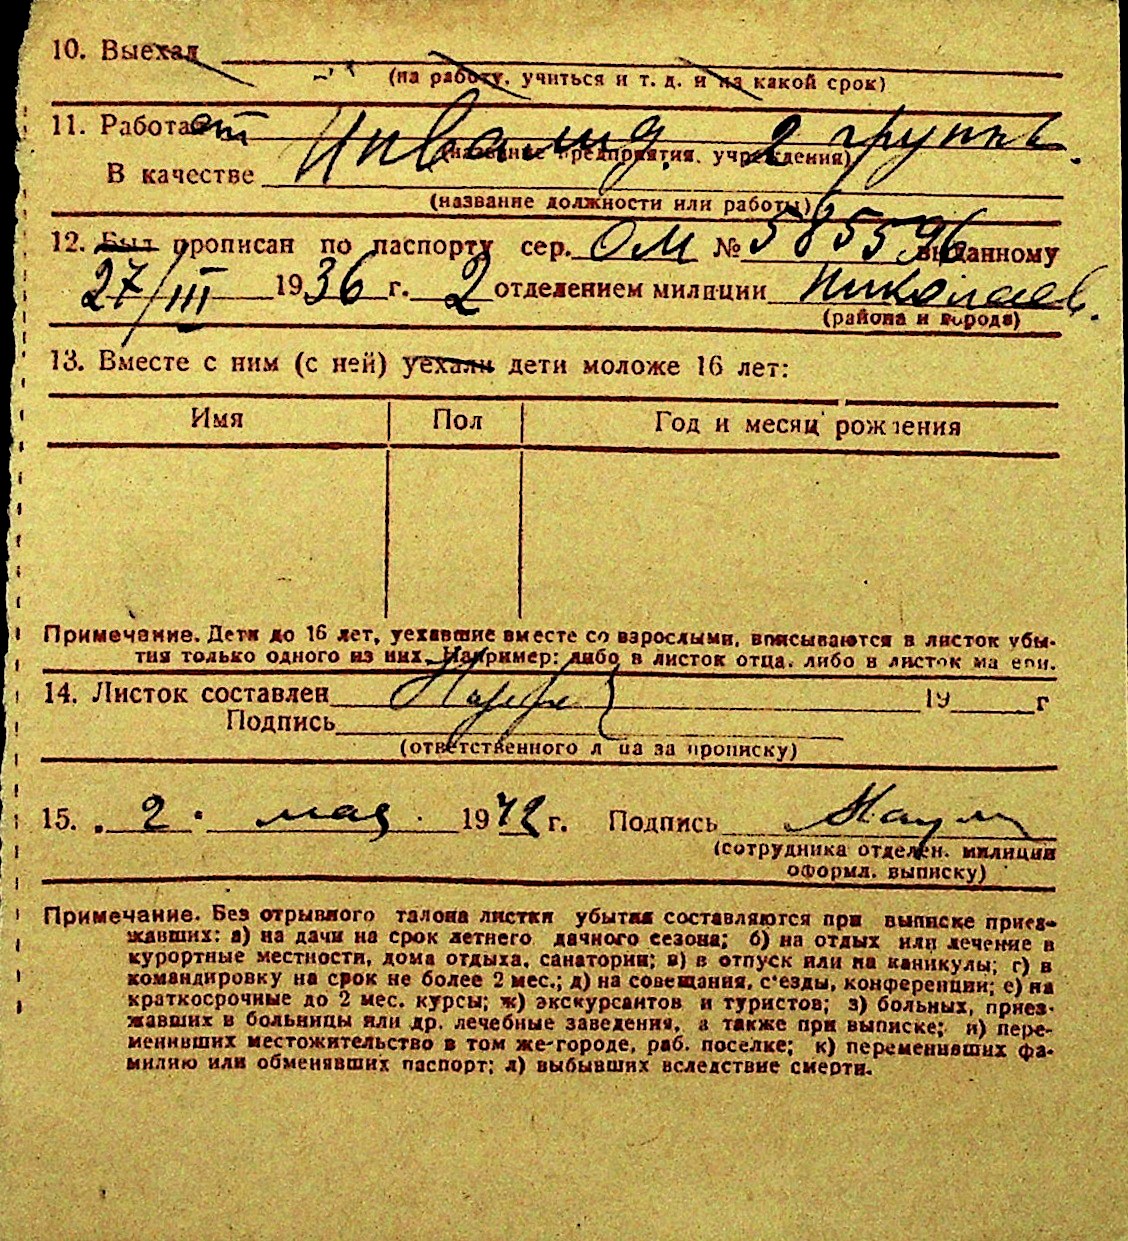 10. Выехал
(на работу, учиться и т. д. и на какой срок)
11. Работает Инвалид. 2 группы.
(название предприятия, учреждения)
В качестве
(название должности или работы)
12. Был прописан по паспорту сер. ОМ № 585596 выданному
27/III 1936 г. 2 отделением милиции Николаев.
(района и города)
13. Вместе с ним (с ней) уехали дети моложе 16 лет:
Имя Пол Год и месяц рождения
Примечание. Дети до 16 лет, уехавшие вместе со взрослыми, вписываются в листок убы-
тия только одного из них. Например: либо в листок отца, либо в листок матери.
14. Листок составлен 19 г
Подпись
(ответственного лица за прописку)
15. 2. мая. 1942 г. Подпись
(сотрудника отделен. милиции
оформл. выписку)
Примечание. Без отрывного талона листки убытия составляются при выписке приез-
жавших: а) на дачи на срок летнего дачного сезона; б) на отдых или лечение в
курортные местности, дома отдыха, санатории; в) в отпуск или на каникулы; г) в
командировку на срок не более 2 мес.; д) на совещания, с'езды, конференции; е) на
краткосрочные до 2 мес. курсы; ж) экскурсантов и туристов; з) больных, приез-
жавших в больницы или др. лечебные заведения, а также при выписке; и) пере-
менивших местожительство в том же-городе, раб. поселке; к) переменивших фа-
милию или обменявших паспорт; л) выбывших вследствие смерти.